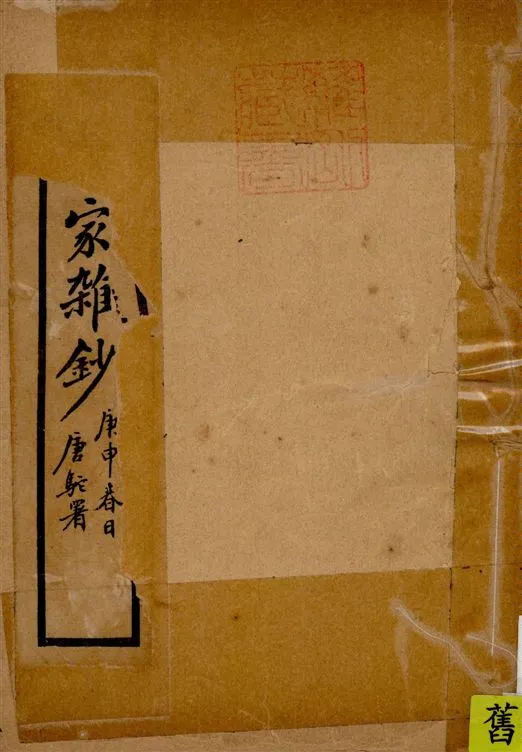 家雑鈔
庚申春日
唐駝署
舊